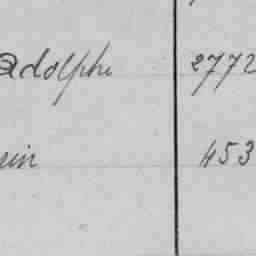 Adolphe 2772
453